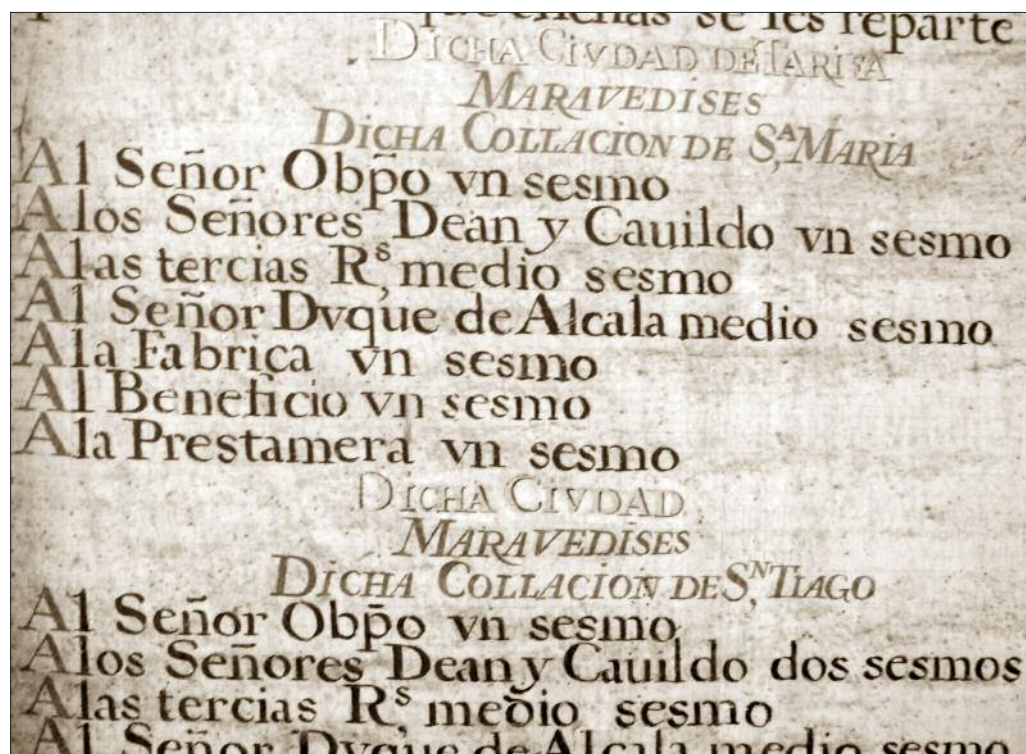 se les reparte
DICHA CIVDAD DE TARIFA
MARAVEDISES
DICHA COLLACION DE S.ᴬ MARIA
Al Señor Obp̄o vn sesmo
A los Señores Dean y Cauildo vn sesmo
A las tercias R.ˢ medio sesmo
Al Señor Dvque de Alcala medio sesmo
A la Fabrica vn sesmo
Al Beneficio vn sesmo
A la Prestamera vn sesmo
DICHA CIVDAD
MARAVEDISES
DICHA COLLACION DE S.ᴺ TIAGO
Al Señor Obp̄o vn sesmo
A los Señores Dean y Cauildo dos sesmos
A las tercias R.ˢ medio sesmo
Al Señor Dvque de Alcala medio sesmo